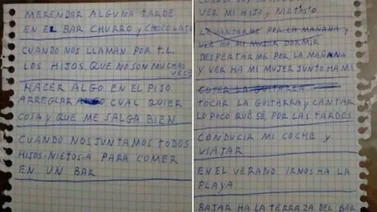 MERENDAR ALGUNA TARDE
EN EL BAR CHURRO Y CHOCOLATE
CUANDO NOS LLAMAN POR T.L.
LOS HIJOS, QUE NO SON MUCHAS
VECES
HACER ALGO EN EL PISO
ARREGRAR CUAL QUIER
COSA Y QUE ME SALGA BIEN
CUANDO NOS JUNTAMOS TODOS
HIJOS-NIETOS-A PARA COMER
EN UN BAR
VER MI HIJO, Y NIETOS
LEVANTARME POR LA MAÑANA Y
VER HA MI MUJER DORMIR
DESPERTARME POR LA MAÑANA
Y VER HA MI MUJER JUNTO HA MI
TOCAR LA GUITARRA Y CANTAR
LO POCO QUE SE, POR LAS TARDES
CONDUCIR MI COCHE Y
VIAJAR
EN EL VERANO IRNOS HA LA
PLAYA
BAJAR HA LA TERRAZA DEL BAR